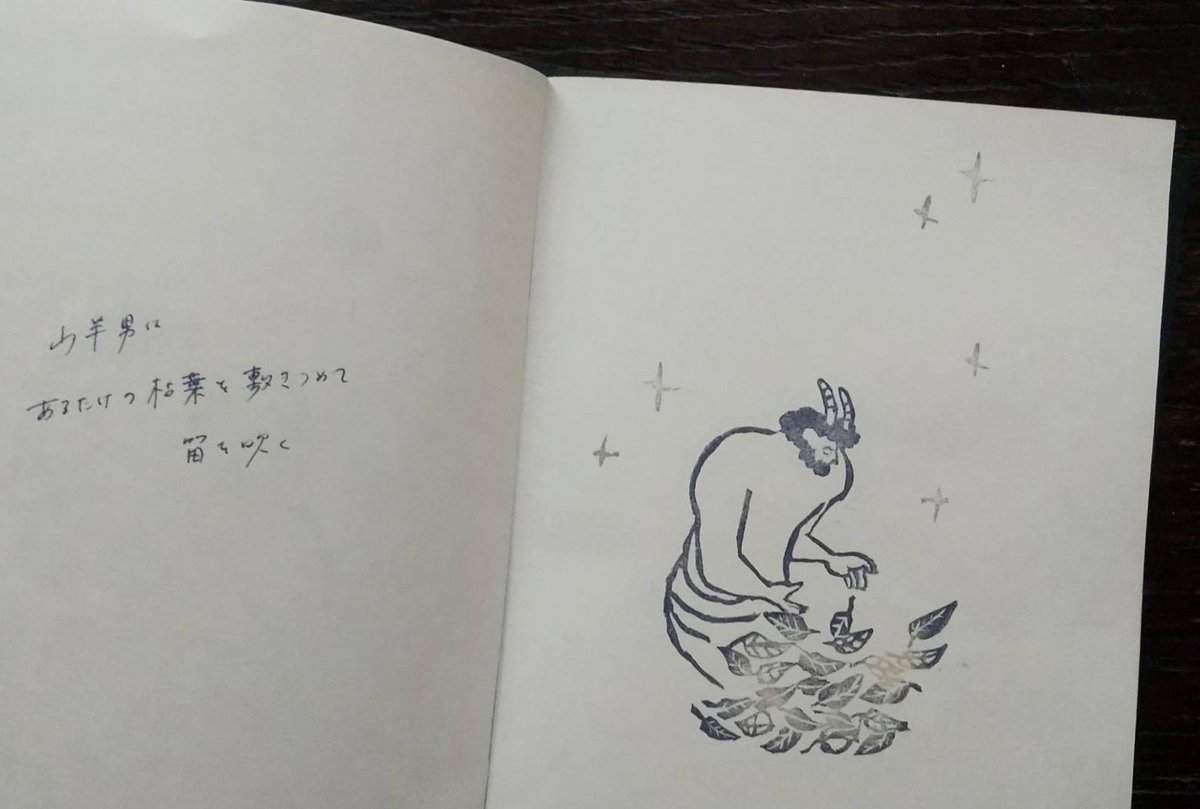 山羊男は
あるたけの枯葉を敷きつめて
笛を吹く